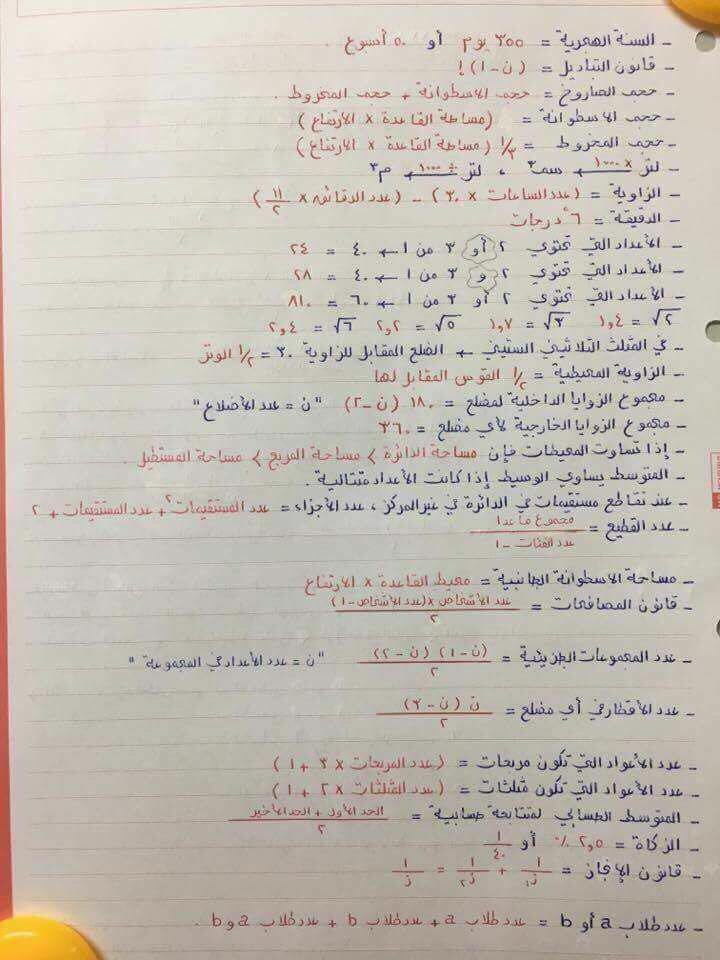 - السنة الهجرية = ٣٥٥ يوم أو ٥٠ أسبوع .
- قانون التباديل = (ن - ١) !
- حجم الصاروخ = حجم الاسطوانة + حجم المخروط .
- حجم الاسطوانة = (مساحة القاعدة × الارتفاع)
- حجم المخروط = ١/٣ (مساحة القاعدة × الارتفاع)
- لتر × ١٠٠٠ ← سم٣ ، لتر ÷ ١٠٠٠ ← م٣
- الزاوية = (عدد الساعات × ٣٠) - (عدد الدقائق × ١١/٢)
- الدقيقة = ٦ درجات
- الأعداد التي تحتوي ٢ أو ٣ من ١ ← ٤٠ = ٢٤
- الأعداد التي تحتوي ٢ و ٣ من ١ ← ٤٠ = ٢٨
- الأعداد التي تحتوي ٢ أو ٣ من ١ ← ٦٠ = ٨١٠
- √٢ = ١,٤ √٣ = ١,٧ √٥ = ٢,٢ √٦ = ٢,٤
- في المثلث الثلاثيني الستيني ← الضلع المقابل للزاوية ٣٠ = ١/٢ الوتر
- الزاوية المحيطية = ١/٢ القوس المقابل لها
- مجموع الزوايا الداخلية لمضلع = ١٨٠ (ن - ٢) " ن = عدد الأضلاع "
- مجموع الزوايا الخارجية لأي مضلع = ٣٦٠
- إذا تساوت المحيطات فإن مساحة الدائرة > مساحة المربع > مساحة المستطيل .
- المتوسط يساوي الوسيط إذا كانت الأعداد متتالية .
- عند تقاطع مستقيمات في الدائرة في غير المركز ، عدد الأجزاء = عدد المستقيمات٢ + عدد المستقيمات + ٢
- عدد القطيع = مجموع ما عدا / عدد الفئات - ١
- مساحة الاسطوانة الجانبية = محيط القاعدة × الارتفاع
- قانون المصافحات = عدد الأشخاص × (عدد الأشخاص - ١) / ٢
- عدد المجموعات الجزيئية = (ن - ١) (ن - ٢) / ٢ " ن = عدد الأعداد في المجموعة "
- عدد الأقطار في أي مضلع = ن (ن - ٣) / ٢
- عدد الأعواد التي تكون مربعات = (عدد المربعات × ٣ + ١)
- عدد الأعواد التي تكون مثلثات = (عدد المثلثات × ٢ + ١)
- المتوسط الحسابي لمتتابعة حسابية = الحد الأول + الحد الأخير / ٢
- الزكاة = ٢,٥ % أو ١/٤٠
- قانون الإنجاز = ١/ز١ + ١/ز٢ = ١/ز
- عدد طلاب a أو b = عدد طلاب a + عدد طلاب b + عدد طلاب a و b .